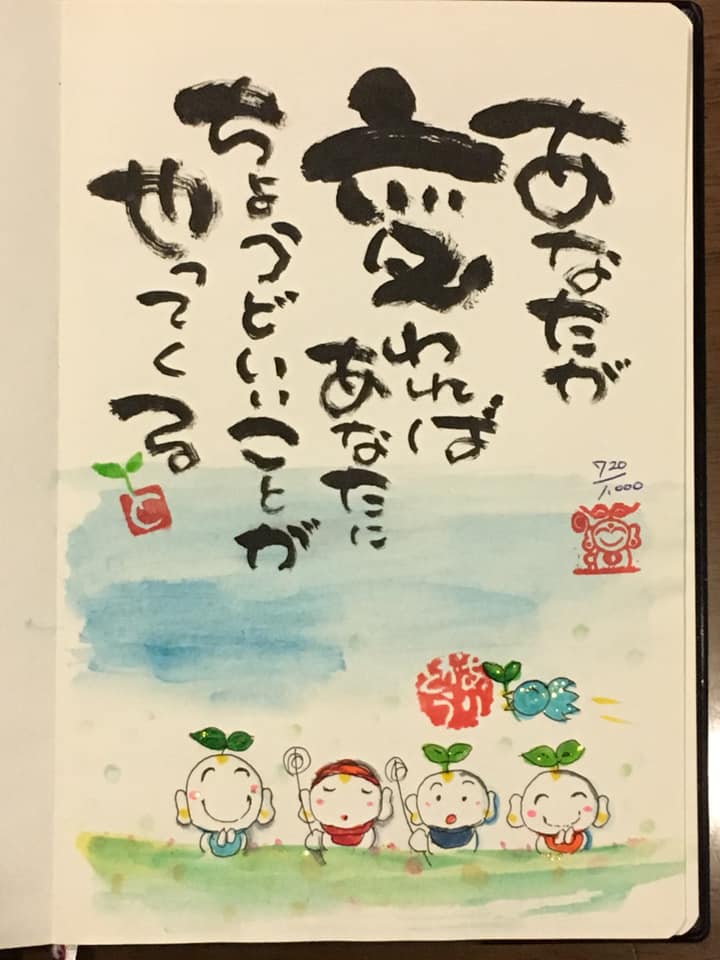 あなたが
変
われば
あなたに
ちょうどいいことが
やってくる
720
1,000